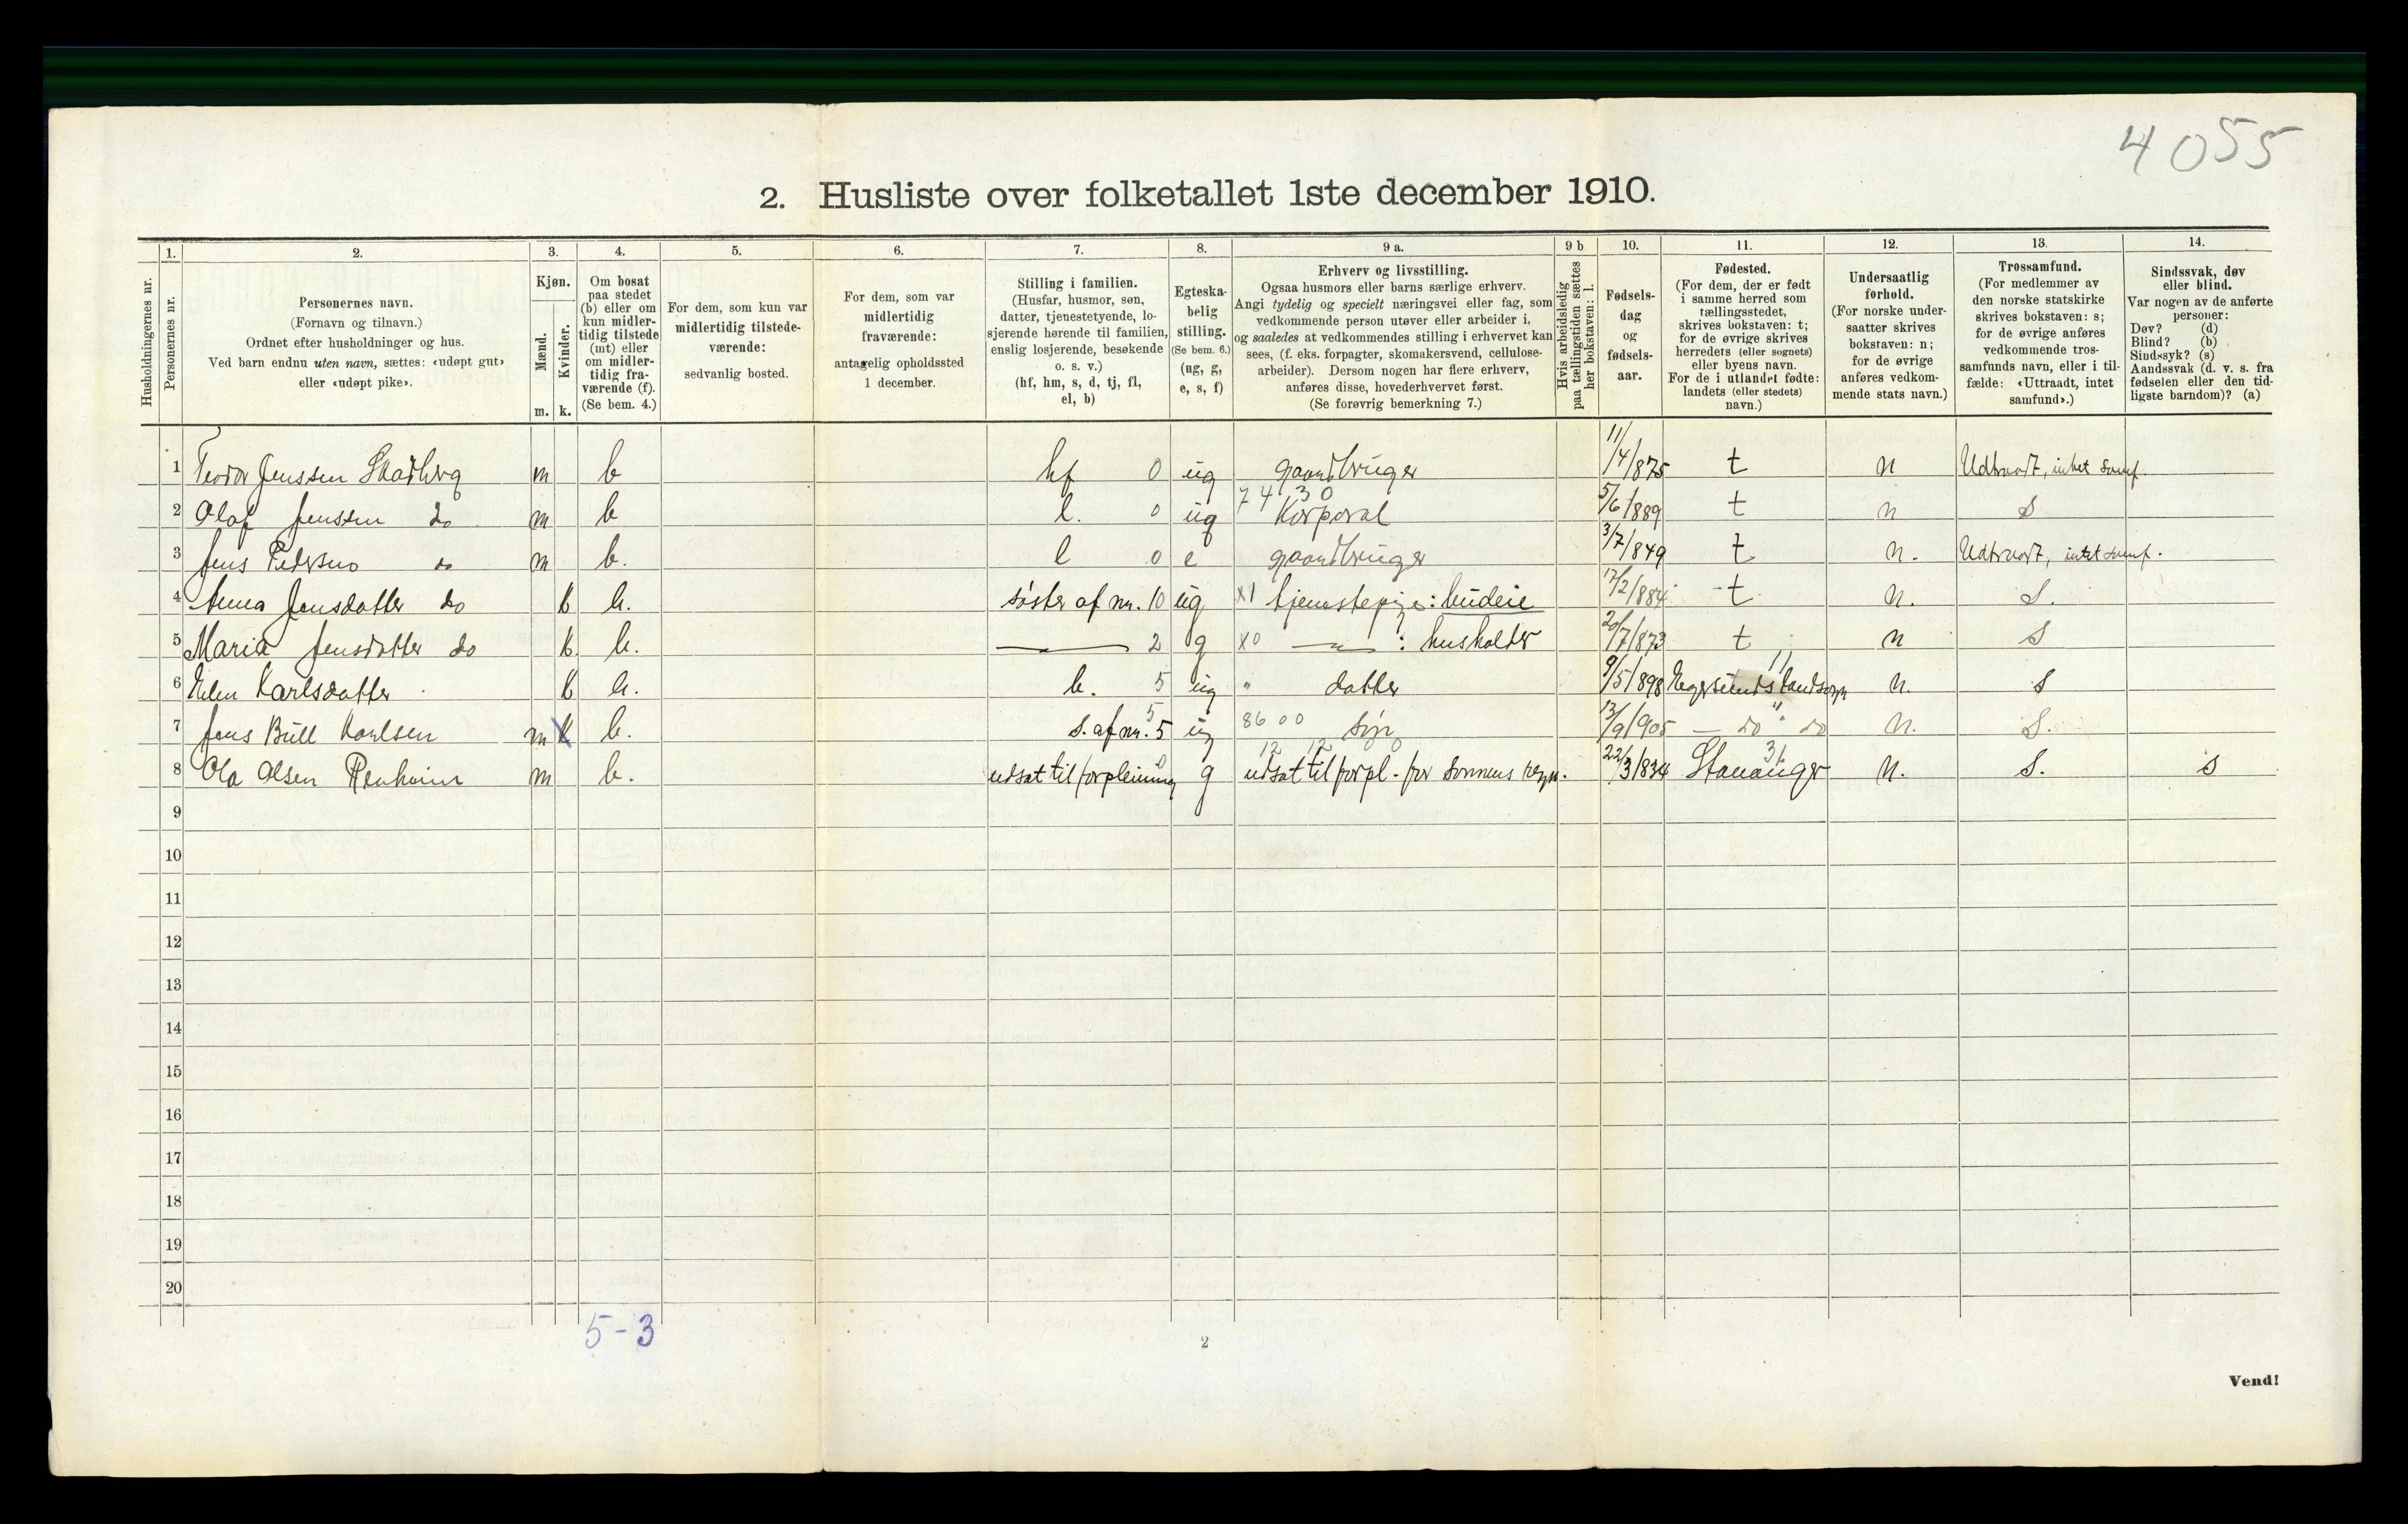 4055
2. Husliste over folketallet 1ste december 1910.
1. 2. 3. 4. 5. 6. 7. 8. 9 a. 9 b 10. 11. 12. 13. 14.
Husholdningernes nr.
Personernes nr.
Personernes navn.
(Fornavn og tilnavn.)
Ordnet efter husholdninger og hus.
Ved barn endnu uten navn, sættes: «udøpt gut»
eller «udøpt pike».
Kjøn.
Mænd.
Kvinder.
m. k.
Om bosat
paa stedet
(b) eller om
kun midler-
tidig tilstede
(mt) eller
om midler-
tidig fra-
værende (f).
(Se bem. 4.)
For dem, som kun var
midlertidig tilstede-
værende:
sedvanlig bosted.
For dem, som var
midlertidig
fraværende:
antagelig opholdssted
1 december.
Stilling i familien.
(Husfar, husmor, søn,
datter, tjenestetyende, lo-
sjerende hørende til familien,
enslig losjerende, besøkende
o. s. v.)
(hf, hm, s, d, tj, fl,
el, b)
Egteska-
belig
stilling.
(Se bem. 6.)
(ug, g,
e, s, f)
Erhverv og livsstilling.
Ogsaa husmors eller barns særlige erhverv.
Angi tydelig og specielt næringsvei eller fag, som
vedkommende person utøver eller arbeider i,
og saaledes at vedkommendes stilling i erhvervet kan
sees, (f. eks. forpagter, skomakersvend, cellulose-
arbeider). Dersom nogen har flere erhverv,
anføres disse, hovederhvervet først.
(Se forøvrig bemerkning 7.)
Hvis arbeidsledig
paa tællingstiden sættes
her bokstaven: l.
Fødsels-
dag
og
fødsels-
aar.
Fødested.
(For dem, der er født
i samme herred som
tællingsstedet,
skrives bokstaven: t;
for de øvrige skrives
herredets (eller sognets)
eller byens navn.
For de i utlandet fødte:
landets (eller stedets)
navn.)
Undersaatlig
forhold.
(For norske under-
saatter skrives
bokstaven: n;
for de øvrige
anføres vedkom-
mende stats navn.)
Trossamfund.
(For medlemmer av
den norske statskirke
skrives bokstaven: s;
for de øvrige anføres
vedkommende tros-
samfunds navn, eller i til-
fælde: «Uttraadt, intet
samfund».)
Sindssvak, døv
eller blind.
Var nogen av de anførte
personer:
Døv? (d)
Blind? (b)
Sindssyk? (s)
Aandssvak (d. v. s. fra
fødselen eller den tid-
ligste barndom)? (a)
1 Jenssen m b hf 0 ug gaardbruger 11/4/875 t n Udtraadt, intet samf.
2 Olaf Jenssen do m b l. 0 ug 74 30 Korporal 5/6/889 t n S
3 Jens Pedersen do m b. l 0 e gaardbruger 3/7/849 t n. Udtraadt, intet samf.
4 Anna Jensdatter do k b. søster af nr. 10 ug x1 tjenestepige: budeie 17/2/884 t n. S.
5 Maria Jensdatter do k. b. — 2 g x0 — : husholder 20/7/873 t n S
6 Karlsdatter k b. b. 5 ug " datter 9/5/898 Egersunds landsogn 11 n. S
7 Jens Bull Karlsen m k b. s. af nr. 5 5 ug 86 00 søn 13/9/905 — do " do n. S.
8 Ola Olsen m b. udsat til forpleining g 12 12 0 udsat til forpl. for sønnens regn. 22/3/834 Stavanger 31 n. S. s
9
10
11
12
13
14
15
16
17
18
19
20
5-3
2
Vend!